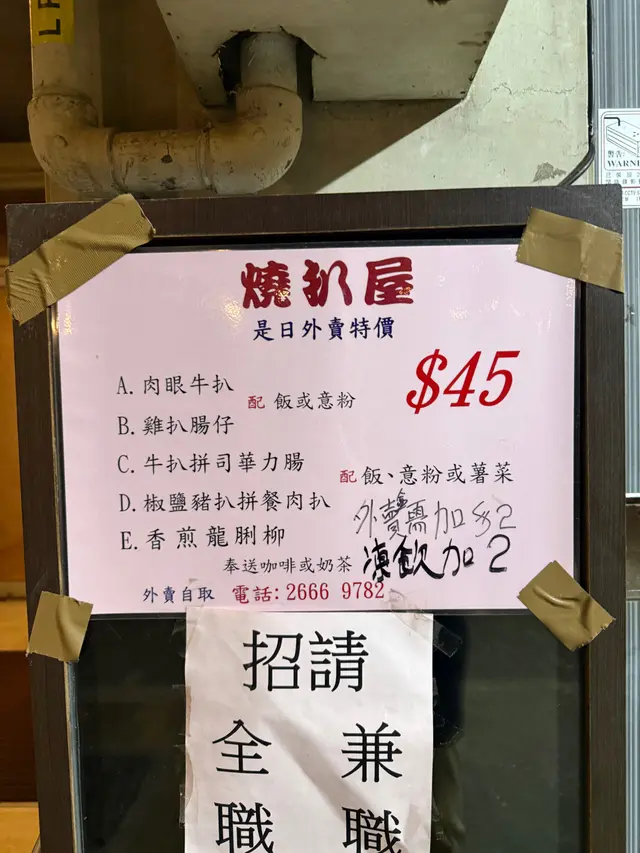 燒扒屋
是日外賣特價
$45
A. 肉眼牛扒
配 飯或意粉
B. 雞扒腸仔
C. 牛扒拼司華力腸
配 飯、意粉或薯菜
D. 椒鹽豬扒拼餐肉扒
外賣需加$2
E. 香煎龍脷柳
奉送咖啡或奶茶 凍飲加2
外賣自取 電話: 2666 9782
招請
全 兼
職 職
警告:
WARNI